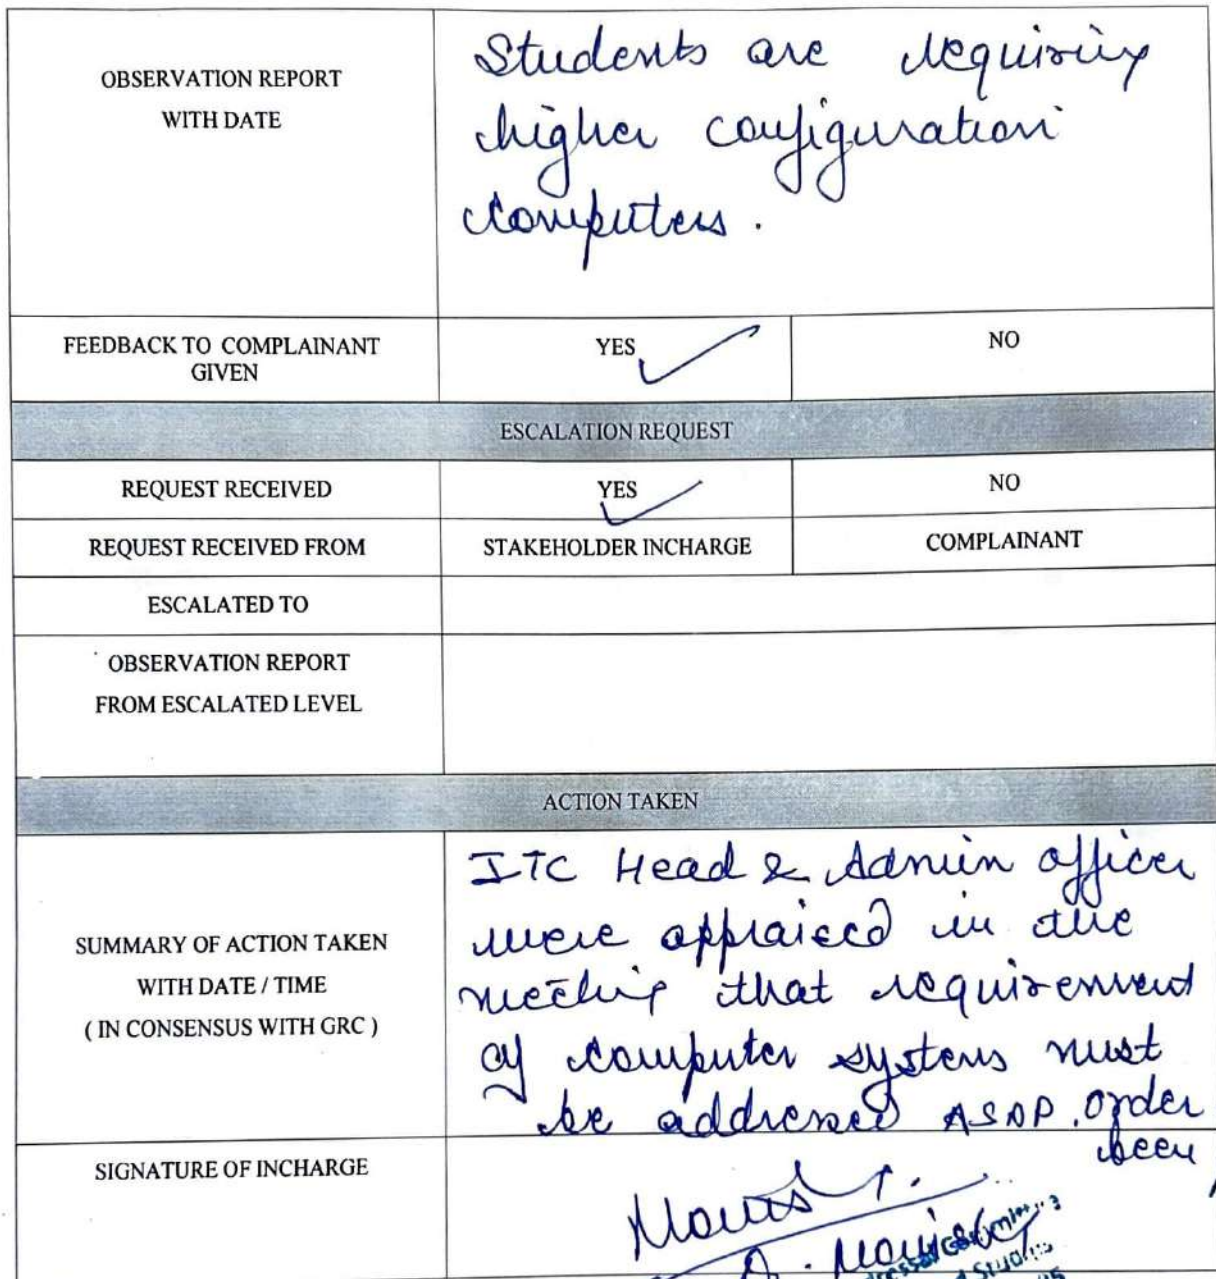 OBSERVATION REPORT
WITH DATE
Students are requiring
higher configuration
computers.
FEEDBACK TO COMPLAINANT
GIVEN
YES
NO
ESCALATION REQUEST
REQUEST RECEIVED
YES
NO
REQUEST RECEIVED FROM
STAKEHOLDER INCHARGE
COMPLAINANT
ESCALATED TO
OBSERVATION REPORT
FROM ESCALATED LEVEL
ACTION TAKEN
SUMMARY OF ACTION TAKEN
WITH DATE / TIME
( IN CONSENSUS WITH GRC )
ITC Head & Admin officer
were appraised in the
meeting that requirement
of computer systems must
be addressed ASAP. Order
been
SIGNATURE OF INCHARGE